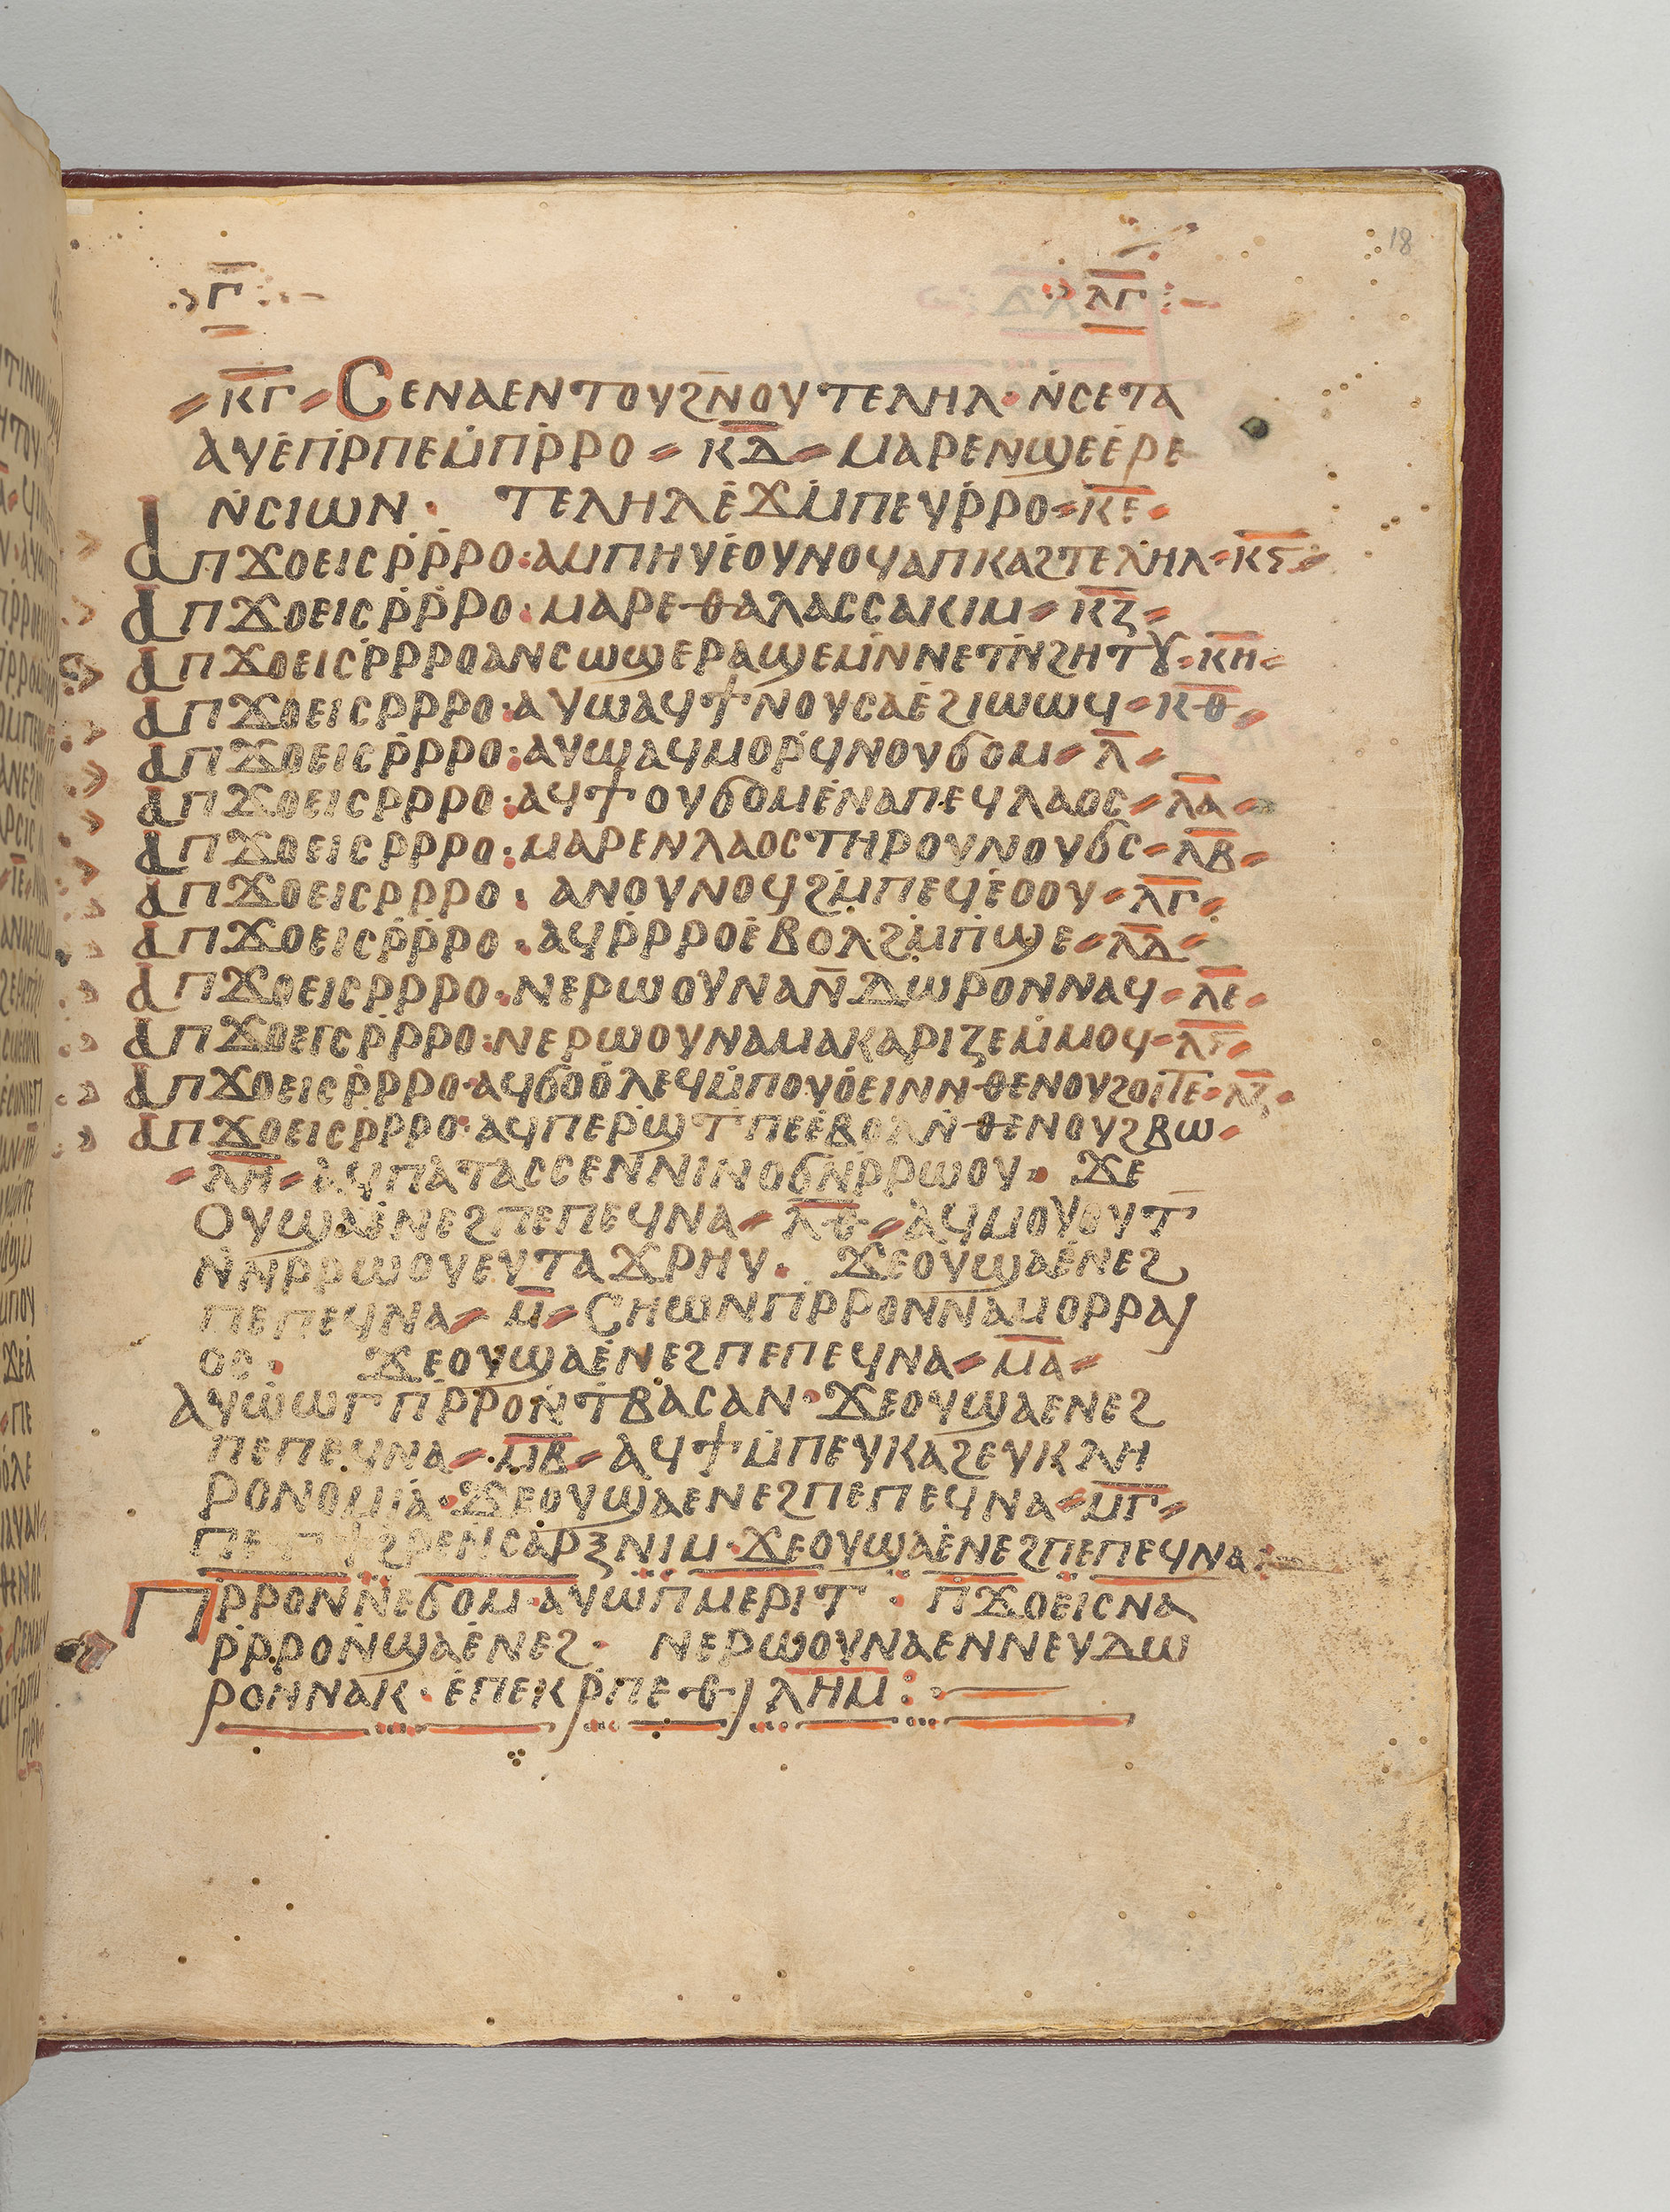 18
Ⲅ̅ ⲗ̅ⲅ̅
ⲕ̅ⲅ̅ Ⲥⲉⲛⲁⲉⲛⲧⲟⲩϩⲛ̅ⲟⲩⲧⲉⲗⲏⲗ· ⲛ̇ⲥⲉⲧⲁ
ⲁⲩⲉ̇ⲡⲣ̇ⲡⲉⲙ̇ⲡⲣ̇ⲣⲟ ⲕ̅ⲇ̅ ⲙⲁⲣⲉⲛϣⲉⲉ̇ⲣⲉ
ⲛ̇ⲥⲓⲱⲛ· ⲧⲉⲗⲏⲗⲉ̇ϫⲙ̇ⲡⲉⲩⲣ̇ⲣⲟ ⲕ̅ⲉ̅
ⲁⲡϫⲟⲉⲓⲥⲣ̇ⲣ̇ⲣⲟ: ⲁⲙⲡⲏⲩⲉ̇ⲟⲩⲛⲟϥⲁⲡⲕⲁϩⲧⲉⲗⲏⲗ ⲕ̅ⲋ̅
ⲁⲡϫⲟⲉⲓⲥⲣ̇ⲣ̇ⲣⲟ· ⲙⲁⲣⲉⲑⲁⲗⲁⲥⲥⲁⲕⲓⲙ ⲕ̅ⲍ̅
ⲁⲡϫⲟⲉⲓⲥⲣ̇ⲣⲣⲟⲁⲛⲥⲱϣⲉⲣⲁϣⲉⲙⲛ̇ⲛⲉⲧⲛ̇ϩⲏⲧⲟⲩ ⲕ̅ⲏ̅
ⲁⲡϫⲟⲉⲓⲥⲣⲣⲣⲟ· ⲁⲩⲱⲁϥϯⲛⲟⲩⲥⲁⲉ̇ϩⲓⲱⲱϥ ⲕ̅ⲑ̅
ⲁⲡϫⲟⲉⲓⲥⲣ̇ⲣⲣⲟ: ⲁⲩⲱⲁϥⲙⲟⲣ̇ϥⲛⲟⲩϭⲟⲙ ⲗ̅
ⲁⲡϫⲟⲉⲓⲥⲣⲣⲣⲟ· ⲁϥϯⲟⲩϭⲟⲙⲉ̇ⲛⲁⲡⲉϥⲗⲁⲟⲥ ⲗ̅ⲁ̅
ⲁⲡϫⲟⲉⲓⲥⲣⲣⲣⲟ· ⲙⲁⲣⲉⲛⲗⲁⲟⲥⲧⲏⲣⲟⲩⲛⲟⲩϭⲥ ⲗ̅ⲃ̅
ⲁⲡϫⲟⲉⲓⲥⲣⲣⲣⲟ· ⲁⲛⲟⲩⲛⲟϥϩⲙ̇ⲡⲉϥⲉ̇ⲟⲟⲩ ⲗ̅ⲅ̅
ⲁⲡϫⲟⲉⲓⲥⲣ̇ⲣ̇ⲣⲟ· ⲁϥⲣ̇ⲣⲣⲟⲉ̇ⲃⲟⲗϩⲙ̇ⲡϣⲉ ⲗ̅ⲇ̅
ⲁⲡϫⲟⲉⲓⲥⲣⲣⲣⲟ· ⲛⲉⲣⲱⲟⲩⲛⲁⲛ̅ⲇⲱⲣⲟⲛⲛⲁϥ ⲗ̅ⲉ̅
ⲁⲡϫⲟⲉⲓⲥⲣ̇ⲣⲣⲟ: ⲛⲉⲣⲱⲟⲩⲛⲁⲙⲁⲕⲁⲣⲓⲍⲉⲙ̇ⲙⲟϥ ⲗ̅ⲋ̅
ⲁⲡϫⲟⲉⲓⲥⲣ̇ⲣⲣⲟ· ⲁϥϭⲟⲟ̇ⲗⲉϥⲙ̇ⲡⲟⲩⲟ̇ⲉⲓⲛⲛⲑⲉⲛⲟⲩϩⲟⲓⲧⲉ ⲗ̅ⲍ̅
ⲁⲡϫⲟⲉⲓⲥⲣⲣⲣⲟ· ⲁϥⲡⲉⲣϣⲧⲡⲉⲉ̇ⲃⲟⲗⲛ̇ⲑⲉⲛⲟⲩϩⲃⲱ
ⲗ̅ⲏ̅ ⲁϥⲡⲁⲧⲁⲥⲥⲉⲛ̇ⲛⲓⲛⲟϭⲛ̇ⲣⲣⲱⲟⲩ· ϫⲉ
ⲟⲩϣⲁⲉ̇ⲛⲉϩⲡⲉⲡⲉϥⲛⲁ ⲗ̅ⲑ̅ ⲁϥⲙⲟⲩⲟⲩⲧ
ⲛ̇ⲛ̇ⲣⲣⲱⲟⲩⲉⲩⲧⲁϫⲣⲏⲩ· ϫⲉⲟⲩϣⲁⲉ̇ⲛⲉϩ
ⲡⲉⲡⲉϥⲛⲁ ⲙ̅ Ⲥⲏⲱⲛⲡⲣⲣⲟⲛⲛⲁⲙⲟⲣⲣⲁⲓ
ⲟⲥ· ϫⲉⲟⲩϣⲁⲉ̇ⲛⲉϩⲡⲉⲡⲉϥⲛⲁ ⲙ̅ⲁ̅
ⲁⲩⲱ̇ⲱⲅⲡⲣ̇ⲣⲟⲛ̇ⲧⲃⲁⲥⲁⲛ· ϫⲉⲟⲩϣⲁⲉⲛⲉϩ
ⲡⲉⲡⲉϥⲛⲁ ⲙ̅ⲃ̅ ⲁϥϯⲙ̇ⲡⲉⲩⲕⲁϩⲉⲩⲕⲗⲏ
ⲣⲟⲛⲟⲙⲓⲁ· ϫⲉⲟⲩϣⲁⲉⲛⲉϩⲡⲉⲡⲉϥⲛⲁ ⲙ̅ⲅ̅
ϩⲣⲉⲛⲥⲁⲣⲝⲛⲓⲙ· ϫⲉⲟⲩϣⲁⲉ̇ⲛⲉϩⲡⲉⲡⲉϥⲛⲁ:
Ⲡⲣⲣⲟⲛⲛ̇ⲉϭⲟⲙ· ⲁⲩⲱⲡⲙⲉⲣⲓⲧ· ⲡϫⲟⲉⲓⲥⲛⲁ
ⲣ̇ⲣⲣⲟⲛ̇ϣⲁⲉ̇ⲛⲉϩ· ⲛⲉⲣⲱⲟⲩⲛⲁⲉⲛⲛⲉⲩⲇⲱ
ⲣⲟⲛⲛⲁⲕ· ⲉ̇ⲡⲉⲕⲣ̇ⲡⲉⲑⲓⲗ̅ⲏ̅ⲙ̅: